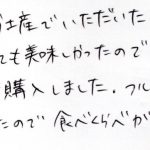 土産でいただいた
ても美味しかったので
購入しました．フル
たので 食べくらべが